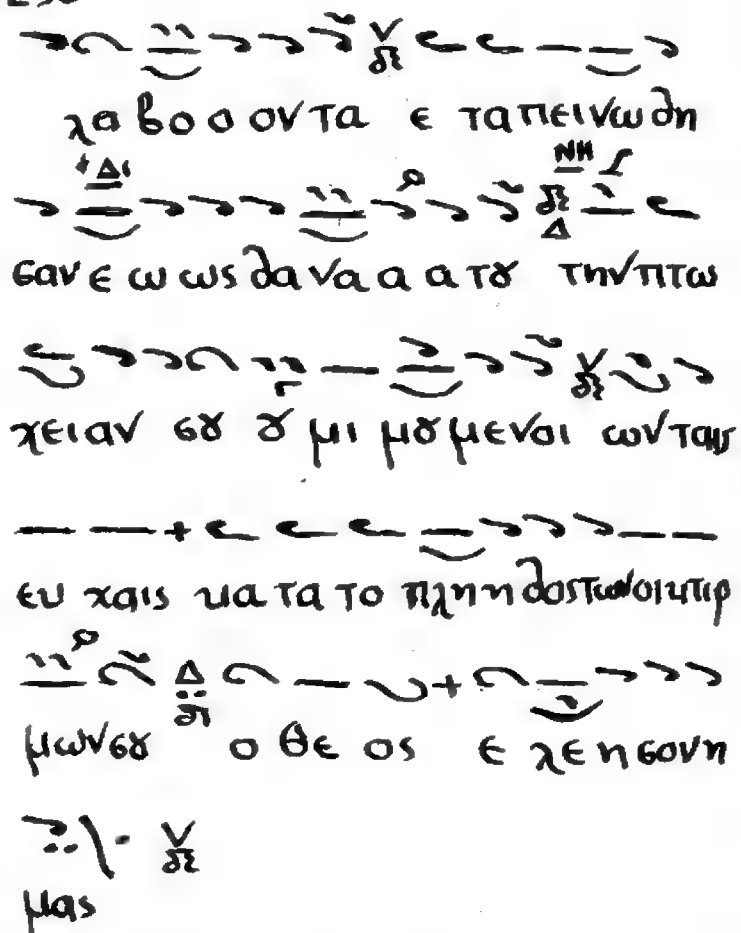 λα βο ο ον τα ε ταπεινωθη
σαν ε ω ως θα να α α α τȣ την πτω
χειαν σȣ ȣ μι μȣ μενοι ων ταις
ευ χαις κα τα το πλη η θος των οικτιρ
μων σȣ ο θε ος ε λε η σον η
μας